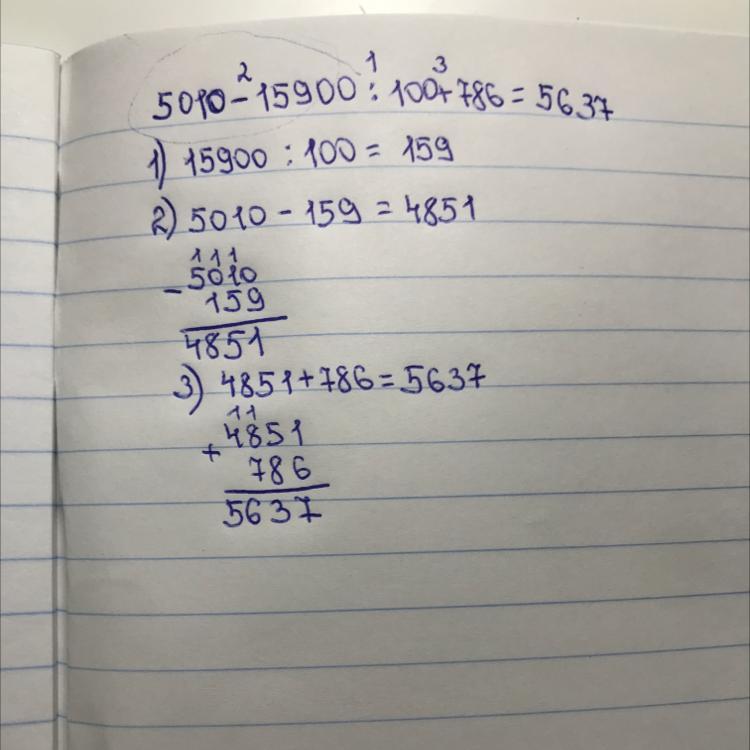 2 1 3
5010 - 15900 : 100 + 786 = 5637
1) 15900 : 100 = 159
2) 5010 - 159 = 4851
1 1 1
- 5010
159
4851
3) 4851 + 786 = 5637
1 1
+ 4851
786
5637